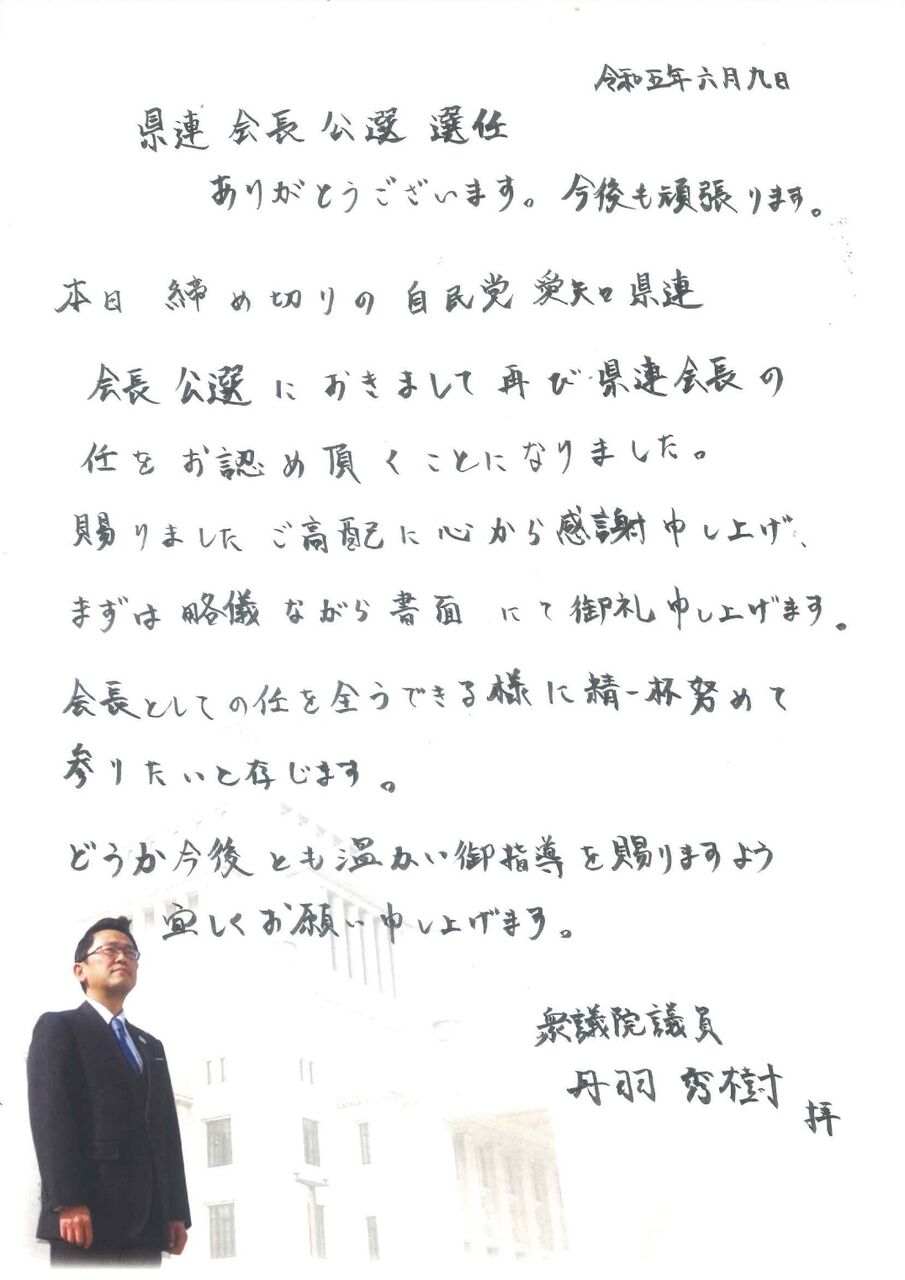 令和五年六月九日
県連 会長 公選 選任
ありがとうございます。今後も頑張ります。
本日 締め切りの 自民党 愛知県連
会長 公選 に おきまして 再び 県連会長の
任を お認め頂くことになりました。
賜りました ご高配に心から感謝申し上げ、
まずは 略儀 ながら 書面 にて 御礼申し上げます。
会長としての任を全うできる様に精一杯努めて
参りたいと存じます。
どうか今後 とも 温かい御指導を賜りますよう
宜しくお願い申し上げます。
衆議院議員
丹羽 秀樹
拝